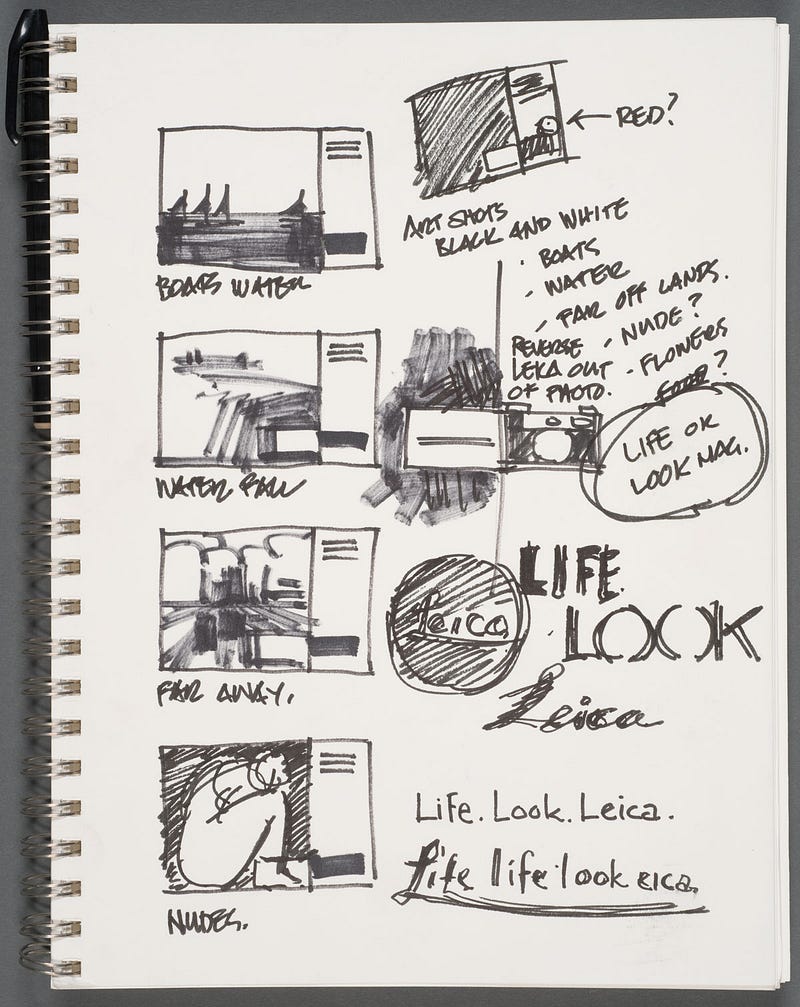 RED?
ART SHOTS
BLACK AND WHITE
· BOATS
· WATER
· FAR OFF LANDS.
· NUDE?
· FLOWERS
?
REVERSE
LEICA OUT
OF PHOTO.
BOATS WATER
LIFE OR
LOOK MAG.
WATER FALL
LIFE
LOOK
Leica
Leica
FAR AWAY.
Life. Look. Leica.
life life look eica
NUDES.